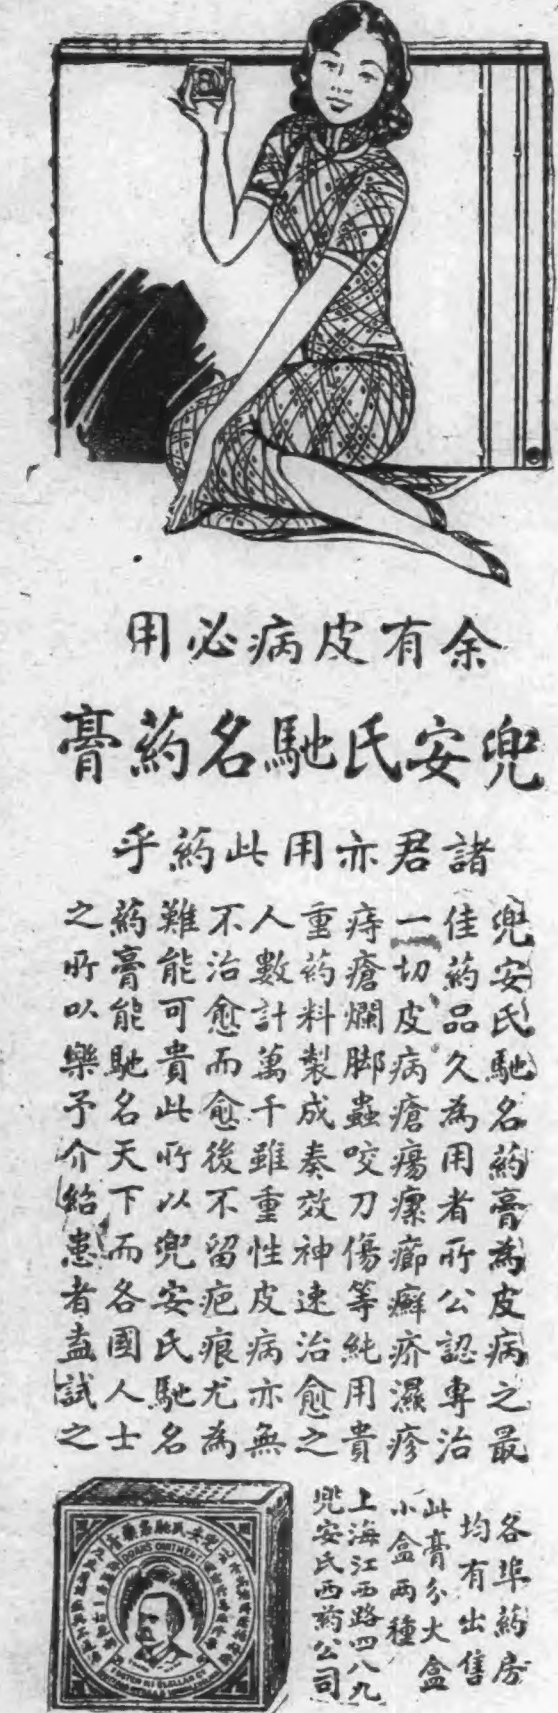 余有皮病必用
兜安氏馳名葯膏
諸君亦用此葯乎
兜安氏馳名葯膏為皮病之最
佳葯品久為用者所公認專治
一切皮病瘡瘍瘰癤癬疥濕疹
痔瘡爛脚蟲咬刀傷等純用貴
重葯料製成奏效神速治愈之
人數計萬千雖重性皮病亦無
不治愈而愈後不留疤痕尤為
難能可貴此所以兜安氏馳名
葯膏能馳名天下而各國人士
之所以樂予介紹患者盍試之
各埠葯房
均有出售
此膏分大盒
小盒兩種
上海江西路四八九
兜安氏西葯公司
兜安氏馳名藥膏
DOANS OINTMENT